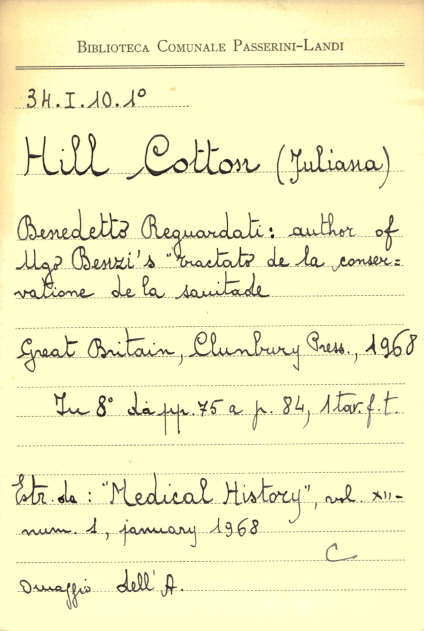 BIBLIOTECA COMUNALE PASSERINI-LANDI
34.I.10.1°
Hill Cotton (Juliana)
Benedetto Reguardati: author of
Ugo Benzi's "Tractato de la conser=
vatione de la sanitade
Great Britain, Clunbury Press., 1968
In 8° da pp. 75 a p. 84, 1 tav. f. t.
Estr. da: "Medical History", vol. XII-
num. 1, january 1968
C
Omaggio dell'A.